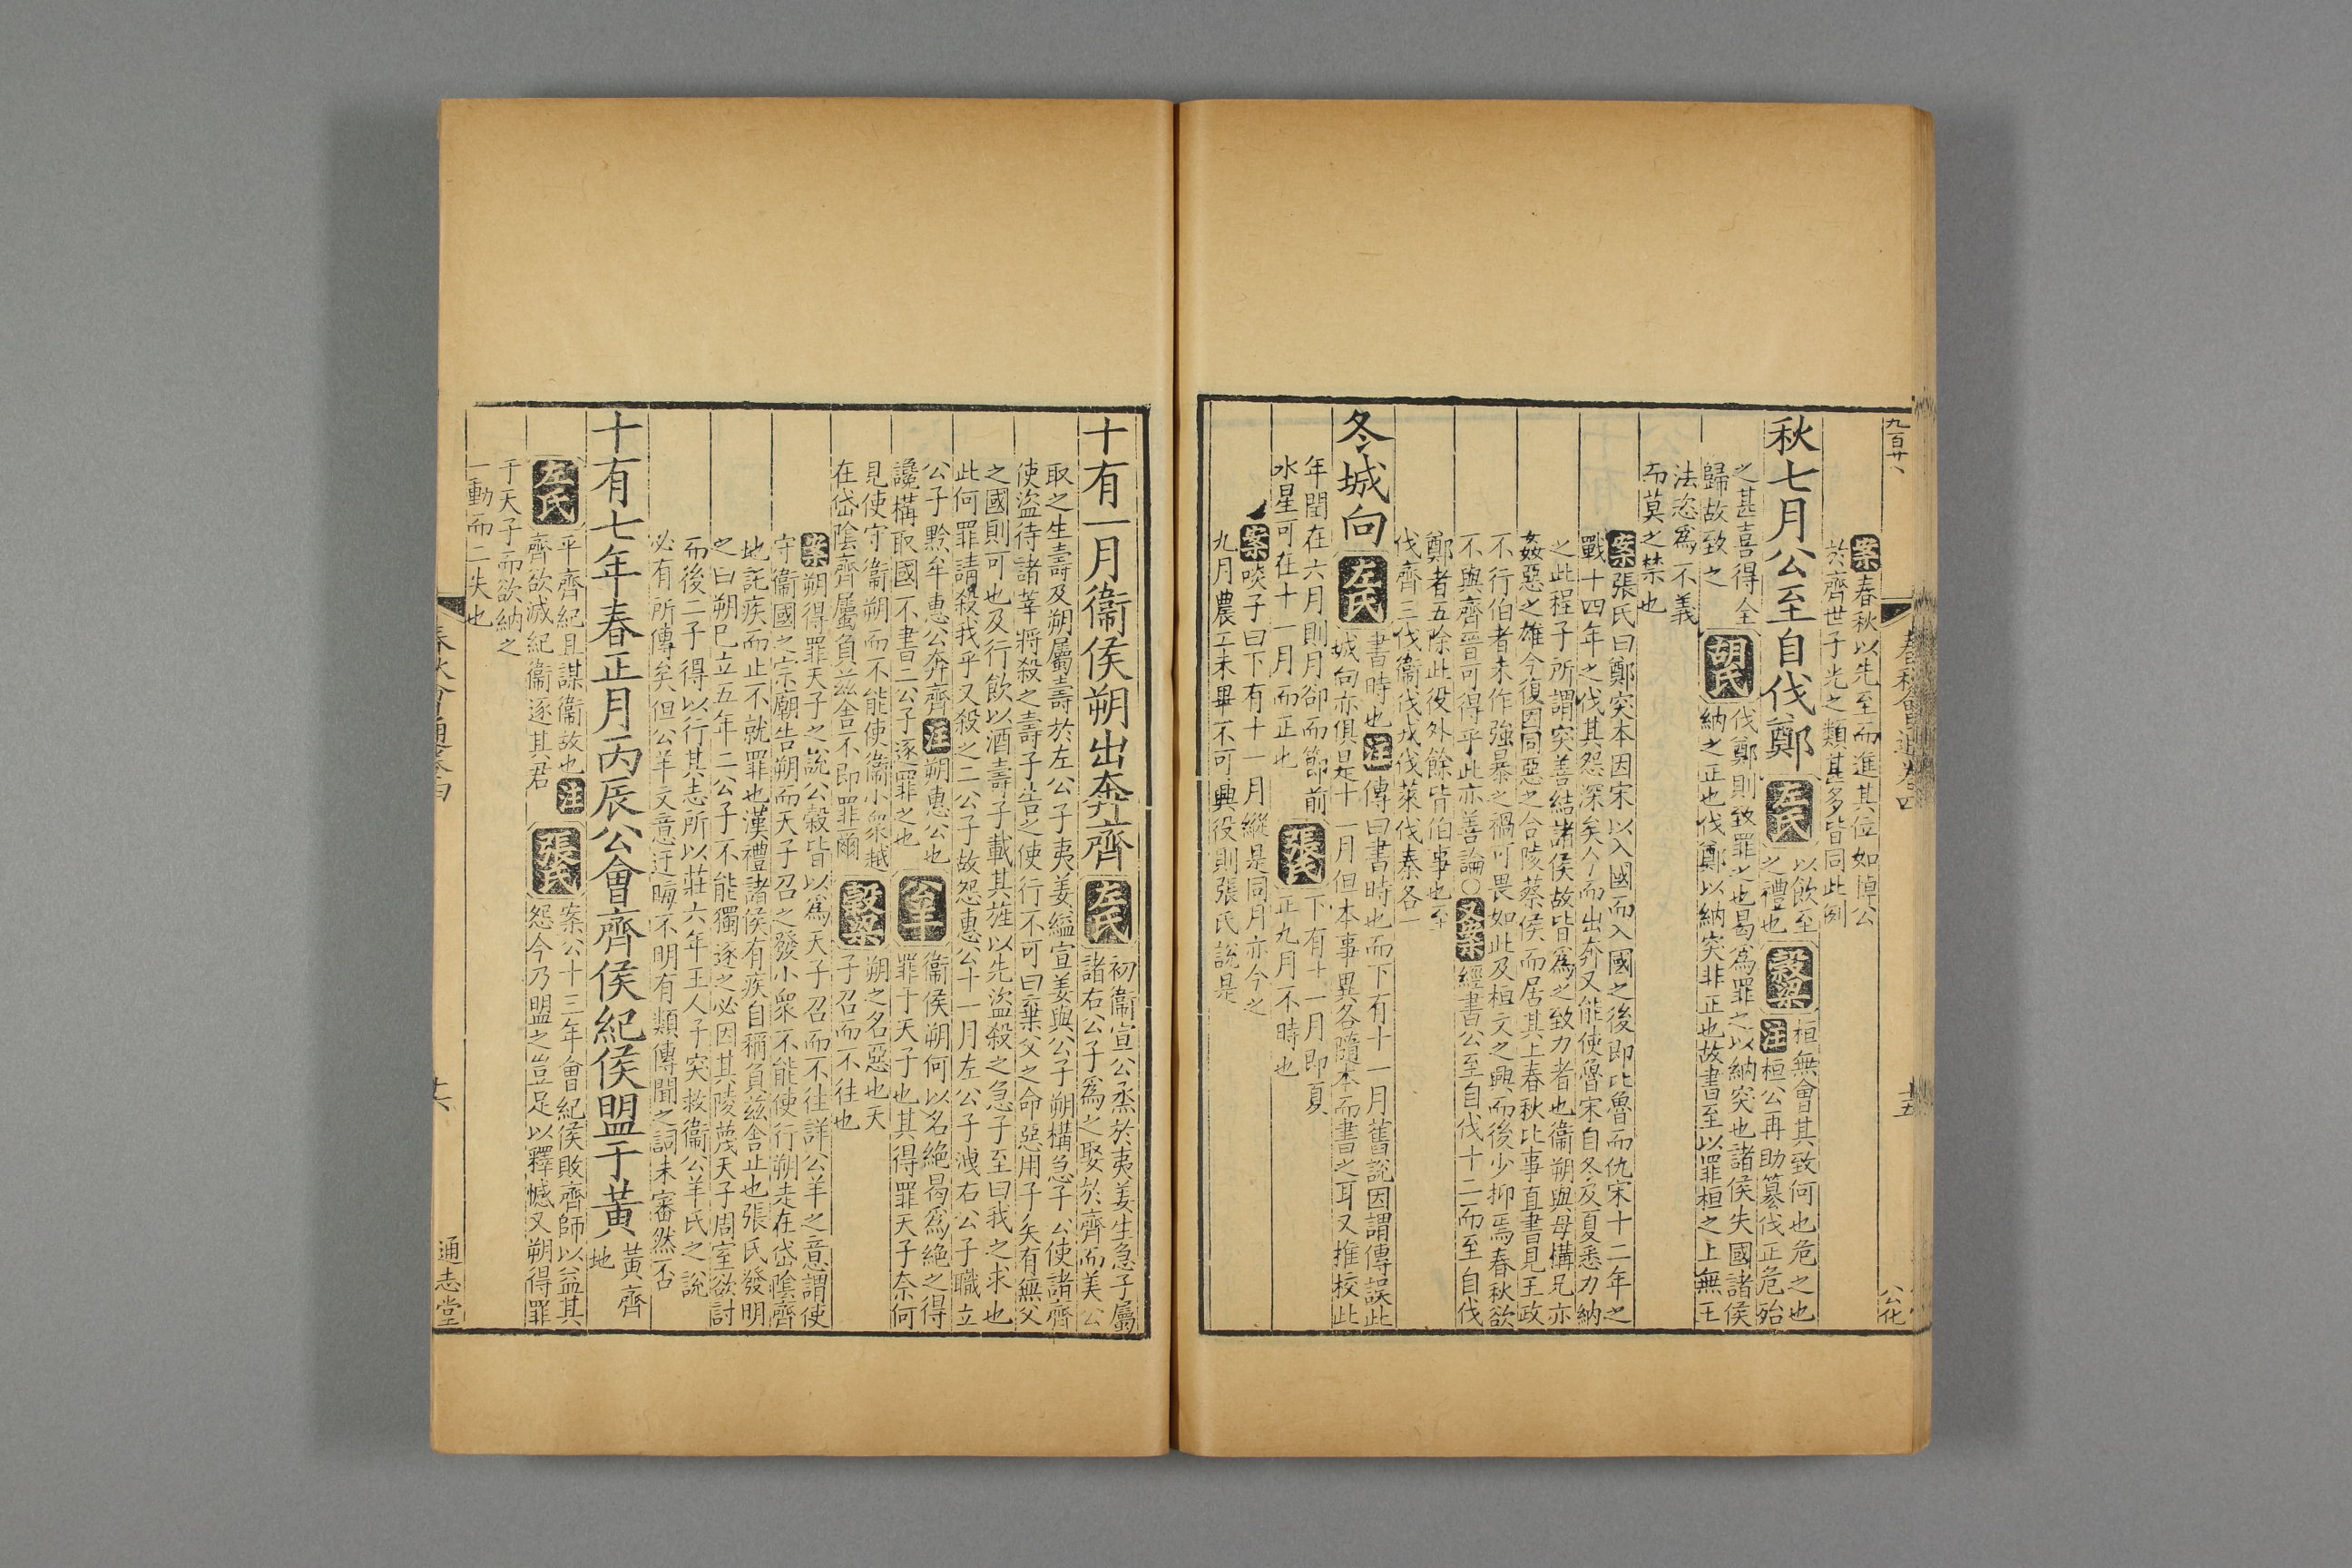 九百廿八
春秋會通卷四
十五
公化
案春秋以先至而進其位如悼公
於齊世子光之類其多皆同此例
秋七月公至自伐鄭左氏以飲至
之禮也
穀梁桓無會其致何也危之也
注桓公再助篡伐正危殆
之甚喜得全
歸故致之
胡氏伐鄭則致罪之也曷為罪之以納突也諸侯失國諸侯
納之正也伐鄭以納突非正也故書至以罪桓之上無王
法恣為不義
而莫之禁也
案張氏曰鄭突本因宋以入國而入國之後即比魯而仇宋十二年之
戰十四年之伐其怨深矣今而出奔又能使魯宋自冬及夏悉力納
之此程子所謂突善結諸侯故皆為之致力者也衞朔與母構兄亦
姦惡之雄今復因同惡之合陵蔡侯而居其上春秋比事直書見王政
不行伯者未作強暴之禍可畏如此及桓文之興而後少抑焉春秋欲
不與齊晉可得乎此亦善論○又案經書公至自伐十二而至自伐
鄭者五除此役外餘皆伯事也至
伐齊三伐衞伐戎伐萊伐秦各一
冬城向左氏書時也注傳曰書時也而下有十一月舊說因謂傳誤此
城向亦俱是十一月但本事異各隨本而書之耳又推校此
年閏在六月則月卻而節前
水星可在十一月而正也
張氏下有十一月即夏
正九月不時也
案啖子曰下有十一月縱是同月亦今之
九月農工未畢不可興役則張氏說是
十有一月衞侯朔出奔齊左氏初衞宣公烝於夷姜生急子屬
諸右公子為之娶於齊而美公
取之生壽及朔屬壽於左公子夷姜縊宣姜與公子朔構急子公使諸齊
使盜待諸莘將殺之壽子告之使行不可曰棄父之命惡用子矣有無父
之國則可也及行飲以酒壽子載其旌以先盜殺之急子至曰我之求也
此何罪請殺我乎又殺之二公子故怨惠公十一月左公子洩右公子職立
公子黔牟惠公奔齊注朔惠公也
讒構取國不書二公子逐罪之也
公羊衞侯朔何以名絕曷為絕之得
罪于天子也其得罪天子奈何
見使守衞朔而不能使衞小衆越
在岱陰齊屬負茲舍不即罪爾
穀梁朔之名惡也天
子召而不往也
案朔得罪天子之說公穀皆以為天子召而不往詳公羊之意謂使
守衞國之宗廟告朔而天子召之發小衆不能使行朔走在岱陰齊
地託疾而止不就罪也漢禮諸侯有疾自稱負茲舍止也張氏發明
之曰朔巳立五年二公子不能獨逐之必因其陵蔑天子周室欲討
而後二子得以行其志所以莊六年王人子突救衞公羊氏之說
必有所傳矣但公羊文意迂晦不明有類傳聞之詞未審然否
十有七年春正月丙辰公會齊侯紀侯盟于黃黃齊
地
左氏平齊紀且謀衞故也注
齊欲滅紀衞逐其君
張氏案公十三年會紀侯敗齊師以益其
怨今乃盟之豈足以釋憾又朔得罪
于天子而欲納之
一動而二失也
春秋會通卷四
十六
通志堂